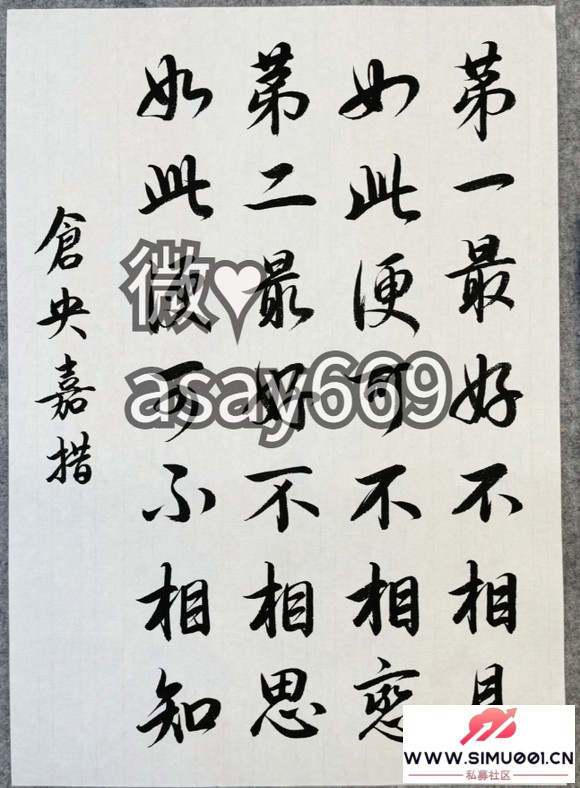 第一最好不相見
如此便可不相恋
第二最好不相思
如此便可不相知
倉央嘉措
微♥
asay669
WWW.SIMU001.CN
私募社区